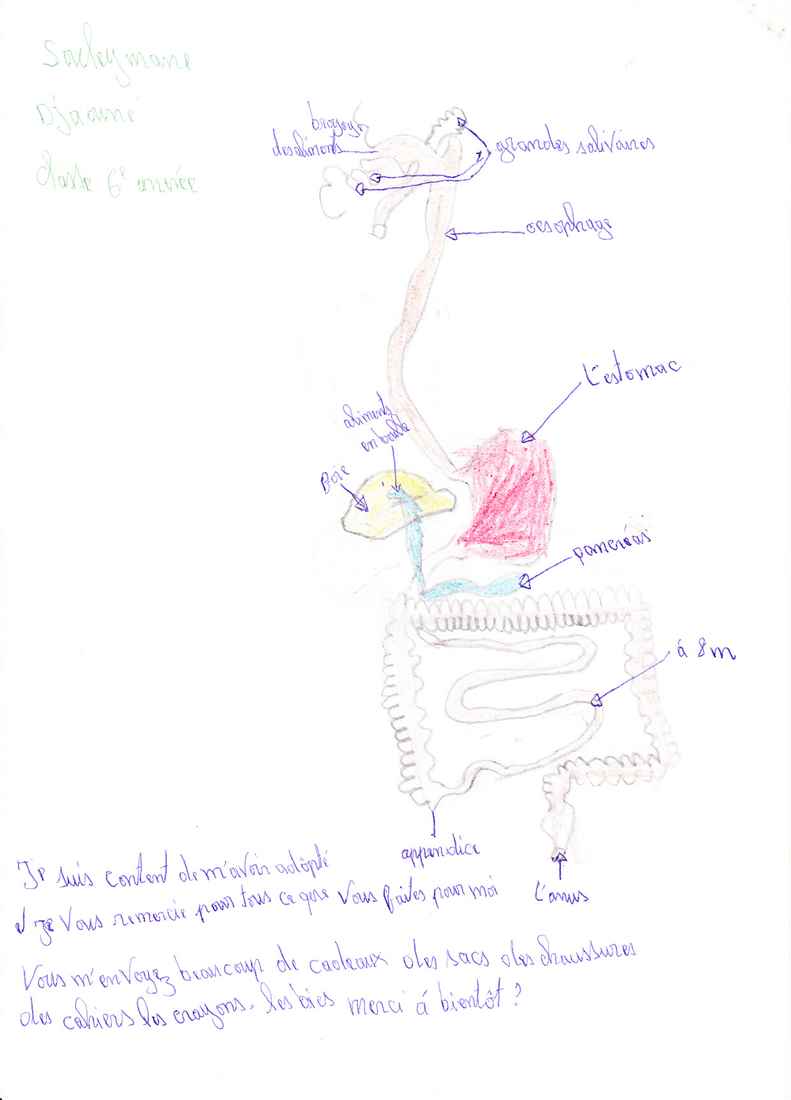 Souleymane
Djaouné
classe 6e année
broyeur
des aliments
grandes salivaires
oesophage
L'estomac
aliments
en boule
Boie
pancréas
à 8m
appendice
L'anus
Je suis content de m'avoir adopté
et je vous remercie pour tous ce que vous faites pour moi
Vous m'envoyez beaucoup de cadeaux des sacs des chaussures
des cahiers les crayons. les bics merci à bientôt ?